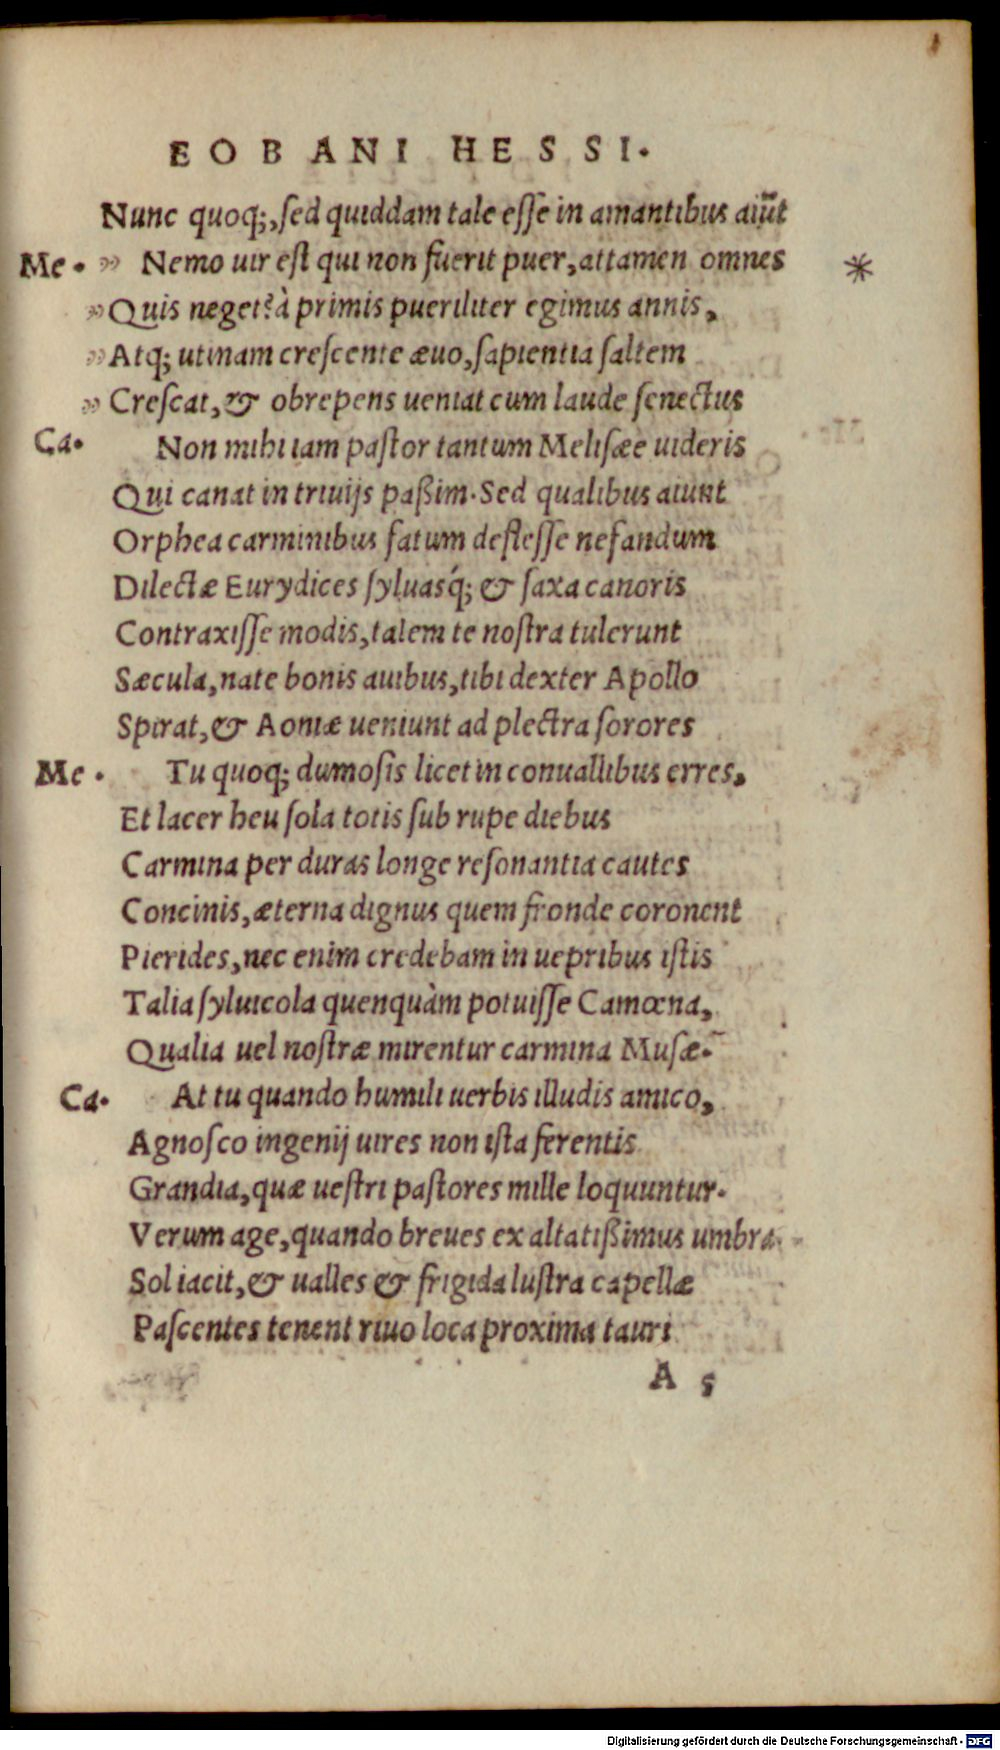 EOBANI HESSI.
Nunc quoq;, sed quiddam tale esse in amantibus aiūt
Me. ,, Nemo uir est qui non fuerit puer, attamen omnes *
,, Quis neget? à primis pueriliter egimus annis,
,, Atq; utinam crescente æuo, sapientia saltem
,, Crescat, & obrepens ueniat cum laude senectus
Ca. Non mihi iam pastor tantum Melisæe uideris
Qui canat in triuijs paßim. Sed qualibus aiunt
Orphea carminibus fatum deflesse nefandum
Dilectæ Eurydices syluasq́; & saxa canoris
Contraxisse modis, talem te nostra tulerunt
Sæcula, nate bonis auibus, tibi dexter Apollo
Spirat, & Aoniæ ueniunt ad plectra sorores
Me. Tu quoq; dumosis licet in conuallibus erres,
Et lacer heu sola totis sub rupe diebus
Carmina per duras longe resonantia cautes
Concinis, æterna dignus quem fronde coronent
Pierides, nec enim credebam in uepribus istis
Talia syluicola quenquàm potuisse Camœna,
Qualia uel nostræ mirentur carmina Musæ.
Ca. At tu quando humili uerbis illudis amico,
Agnosco ingenij uires non ista ferentis
Grandia, quæ uestri pastores mille loquuntur.
Verum age, quando breues ex altatißimus umbra
Sol iacit, & ualles & frigida lustra capellæ
Pascentes tenent riuo loca proxima tauri
A 5
Digitalisierung gefördert durch die Deutsche Forschungsgemeinschaft - DFG